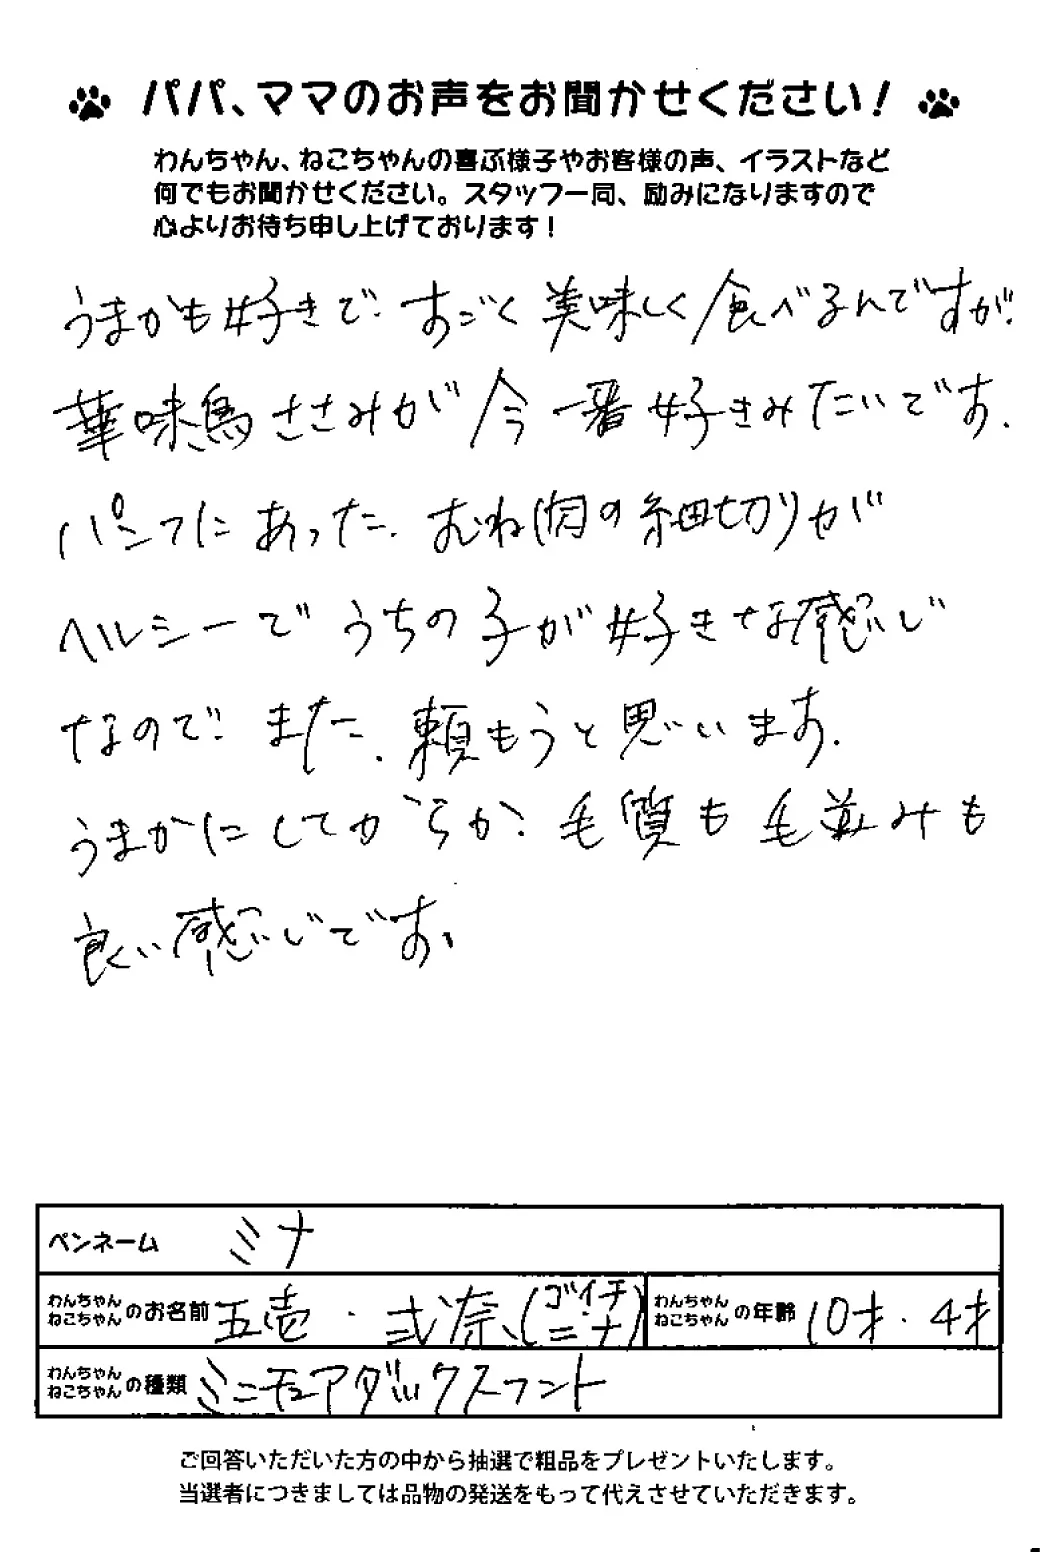 パパ、ママのお声をお聞かせください！
わんちゃん、ねこちゃんの喜ぶ様子やお客様の声、イラストなど
何でもお聞かせください。スタッフ一同、励みになりますので
心よりお待ち申し上げております！
うまかも好きで、すごく美味しく食べるんですが、
華味鳥ささみが今一番好きみたいです。
パンフにあった、むね肉の細切りが
ヘルシーでうちの子が好きな感じ
なので、また、頼もうと思います。
うまかにしてからか、毛質も毛並みも
良い感じです。
ペンネーム ミナ
わんちゃん ねこちゃん のお名前 五壱・弍奈(ゴイチ・ニーナ)
わんちゃん ねこちゃん の年齢 10才・4才
わんちゃん ねこちゃん の種類 ミニチュアダックスフント
ご回答いただいた方の中から抽選で粗品をプレゼントいたします。
当選者につきましては品物の発送をもって代えさせていただきます。